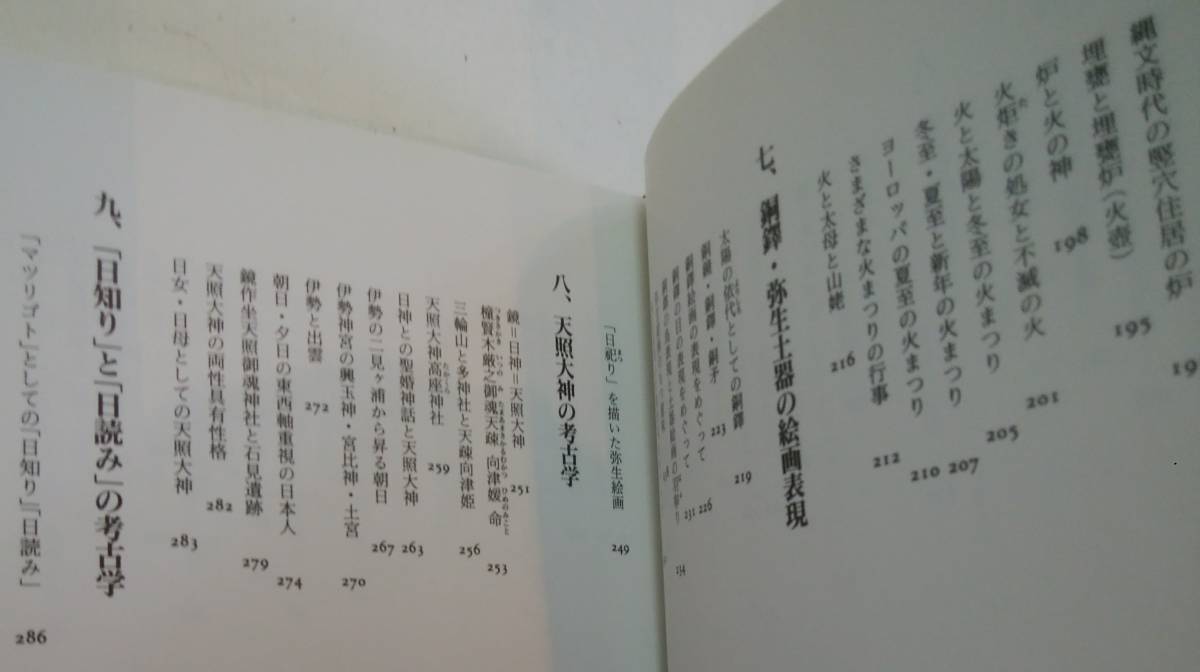 縄文時代の竪穴住居の炉 19
埋甕と埋甕炉（火壺） 195
炉と火の神 198
火炬きの処女と不滅の火 201
火と太陽と冬至の火まつり 205
冬至・夏至と新年の火まつり 207
ヨーロッパの夏至の火まつり 210
さまざまな火まつりの行事 212
火と太母と山姥 216
七、銅鐸・弥生土器の絵画表現
太陽の依代としての銅鐸 219
銅鏡・銅鐸・銅矛 223
銅鐸絵画の表現をめぐって 226
銅鐸の日の表現をめぐって 231
「日祀り」を描いた弥生絵画 249
八、天照大神の考古学
鏡＝日神＝天照大神 251
撞賢木厳之御魂天疎向津媛命 253
三輪山と多神社と天疎向津姫 256
天照大神高座神社 259
日神との聖婚神話と天照大神 263
伊勢の二見ヶ浦から昇る朝日 267
伊勢神宮の興玉神・宮比神・土宮 270
伊勢と出雲 272
朝日・夕日の東西軸重視の日本人 274
鏡作坐天照御魂神社と石見遺跡 279
天照大神の両性具有性格 282
日女・日母としての天照大神 283
九、「日知り」と「日読み」の考古学
「マツリゴト」としての「日知り」「日読み」 286